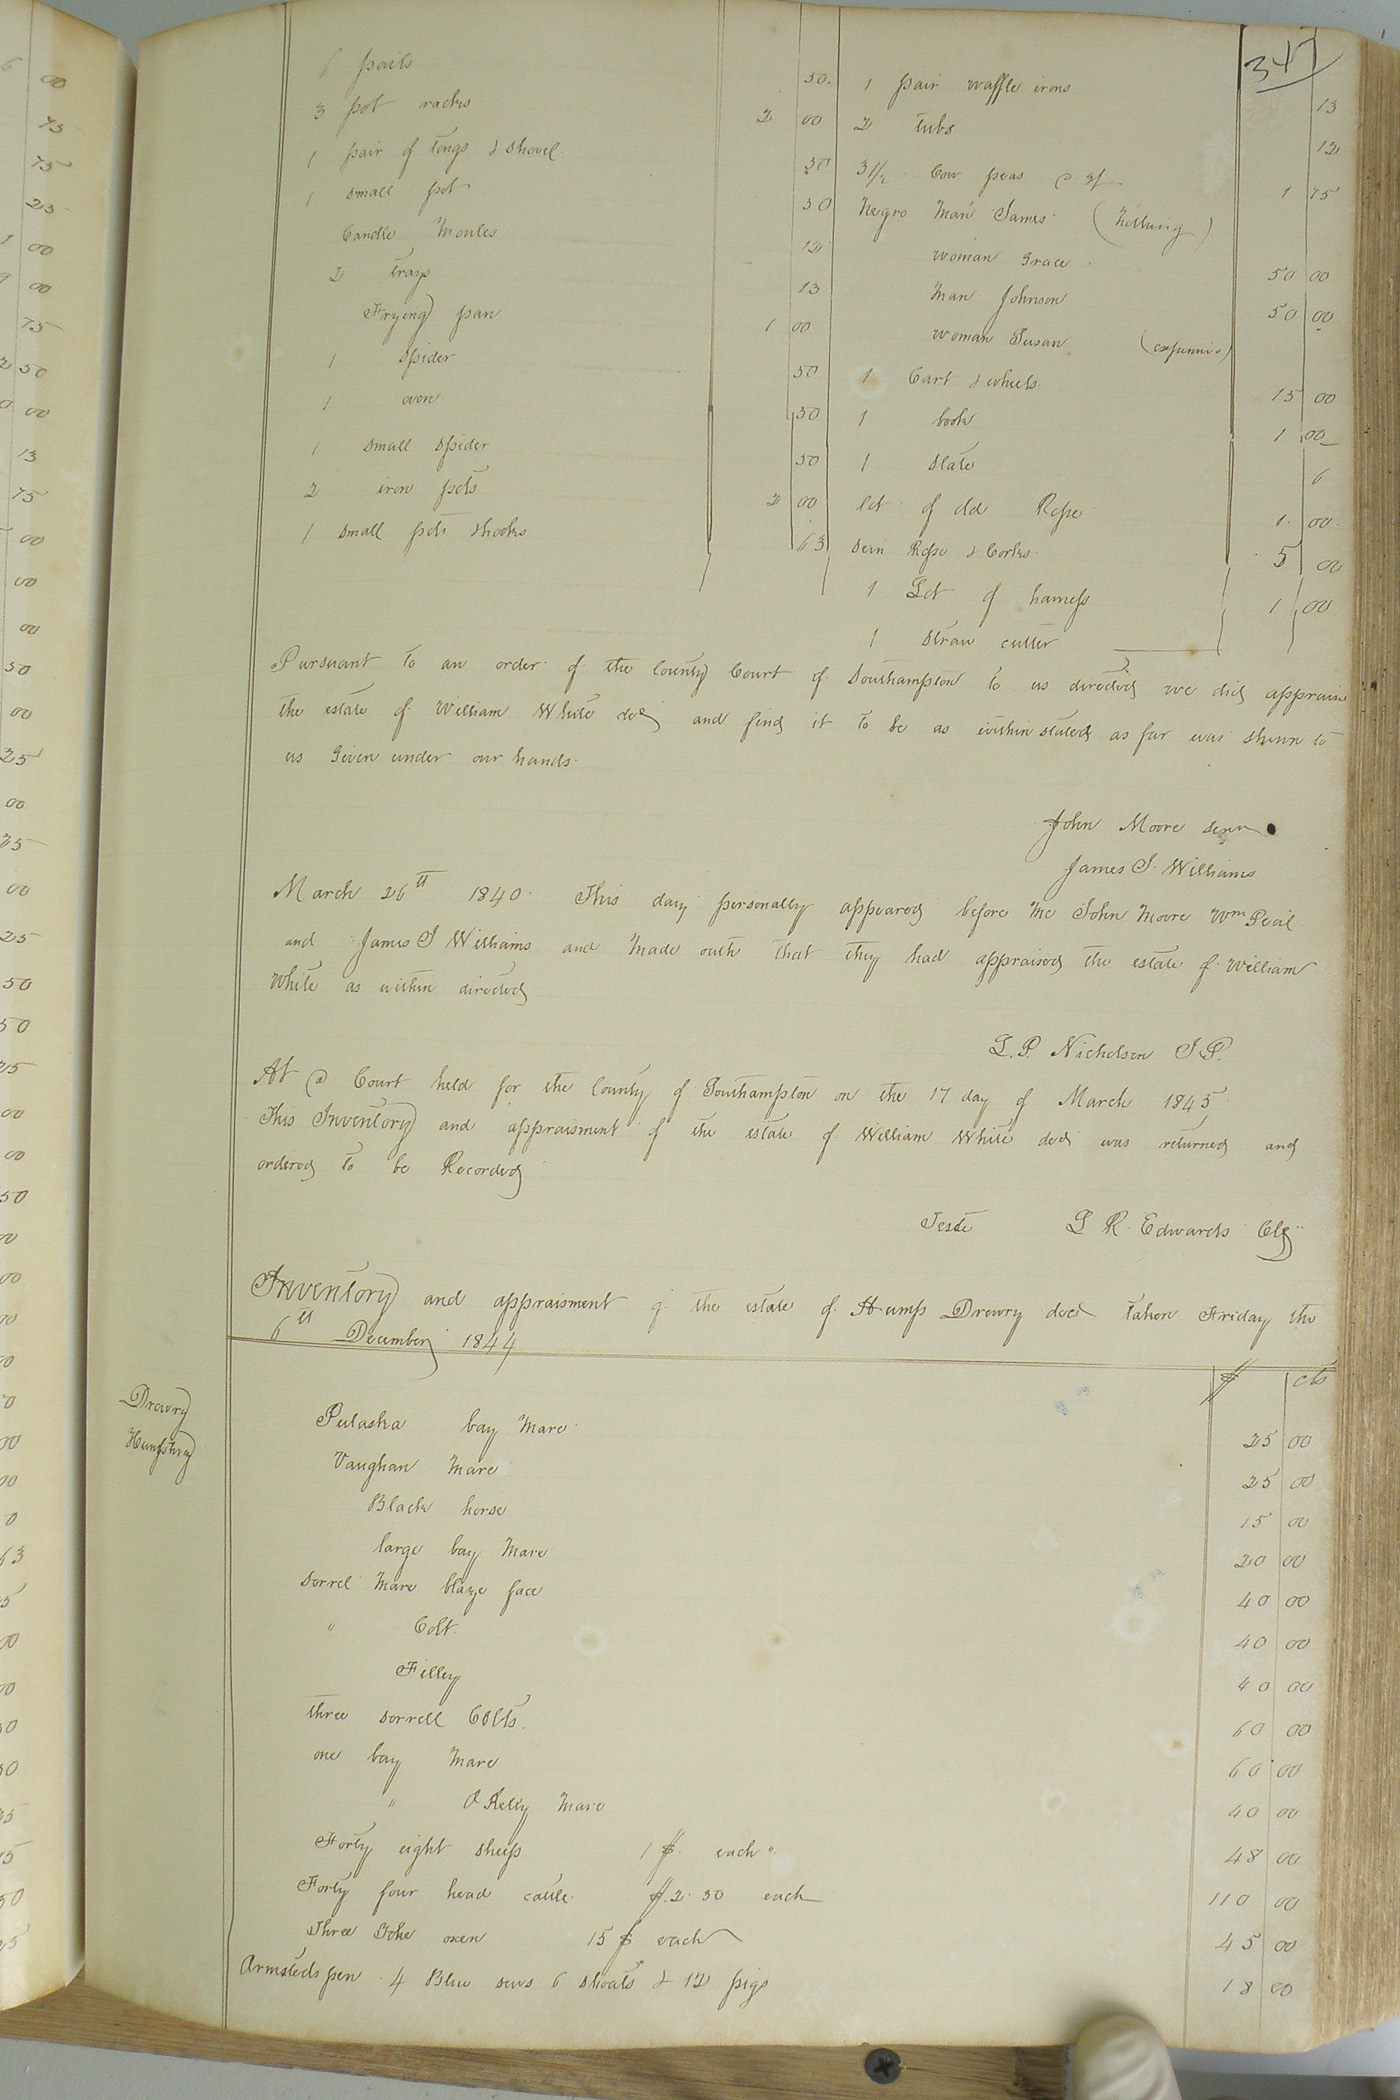 347
6 pails 50.
3 pot racks 2 00
1 pair of tongs & shovel 50
1 small pot 50
Candle Moules 12
2 trays 13
Frying pan 1 00
1 Spider 50
1 oven 50
1 small spider 50
2 iron pots 2 00
1 small pot & hooks 63
1 pair waffle irons 13
2 tubs 12
3 1/2 Cow peas 1 75
Negro Man James (Nothing)
woman Grace 50 00
Man Johnson 50 00
woman Susan
1 Cart & wheels 15 00
1 book 1 00
1 Slate 6
lot of old Rope 1 00
Sein Rope & Corks 5 00
1 Lot of harness 1 00
1 Straw cutter
Pursuant to an order of the County Court of Southampton to us directed we did appraise
the estate of William White decd and find it to be as within stated as far was shewn to
us Given under our hands
John Moore Senr
James S. Williams
March 26th 1840. This day personally appeared before me John Moore Wm
and James S Williams and made oath that they had appraised the estate of William
White as within directed
L. P. Nicholson J.P.
At a Court held for the County of Southampton on the 17 day of March 1845
This Inventory and appraisment of the estate of William White decd was returned and
ordered to be Recorded
Teste L R Edwards Clk
Inventory and appraisment of the estate of Hump Drewry decd taken Friday the
6th December 1844
$ cts
Drewry
Humphrey
Pulaska bay Mare 25 00
Vaughan Mare 25 00
Black horse 15 00
large bay Mare 20 00
Sorrel Mare blaze face 40 00
" Colt 40 00
Filley 40 00
three sorrell Colts. 60 00
one bay Mare 60 00
" O Kelly Mare 40 00
Forty eight sheep 1 $ each 48 00
Forty four head cattle $.2.50 each 110 00
Three Yoke oxen 15 $ each 45 00
Armsteds pen 4 Blue sows 6 shoats & 12 pigs 18 00